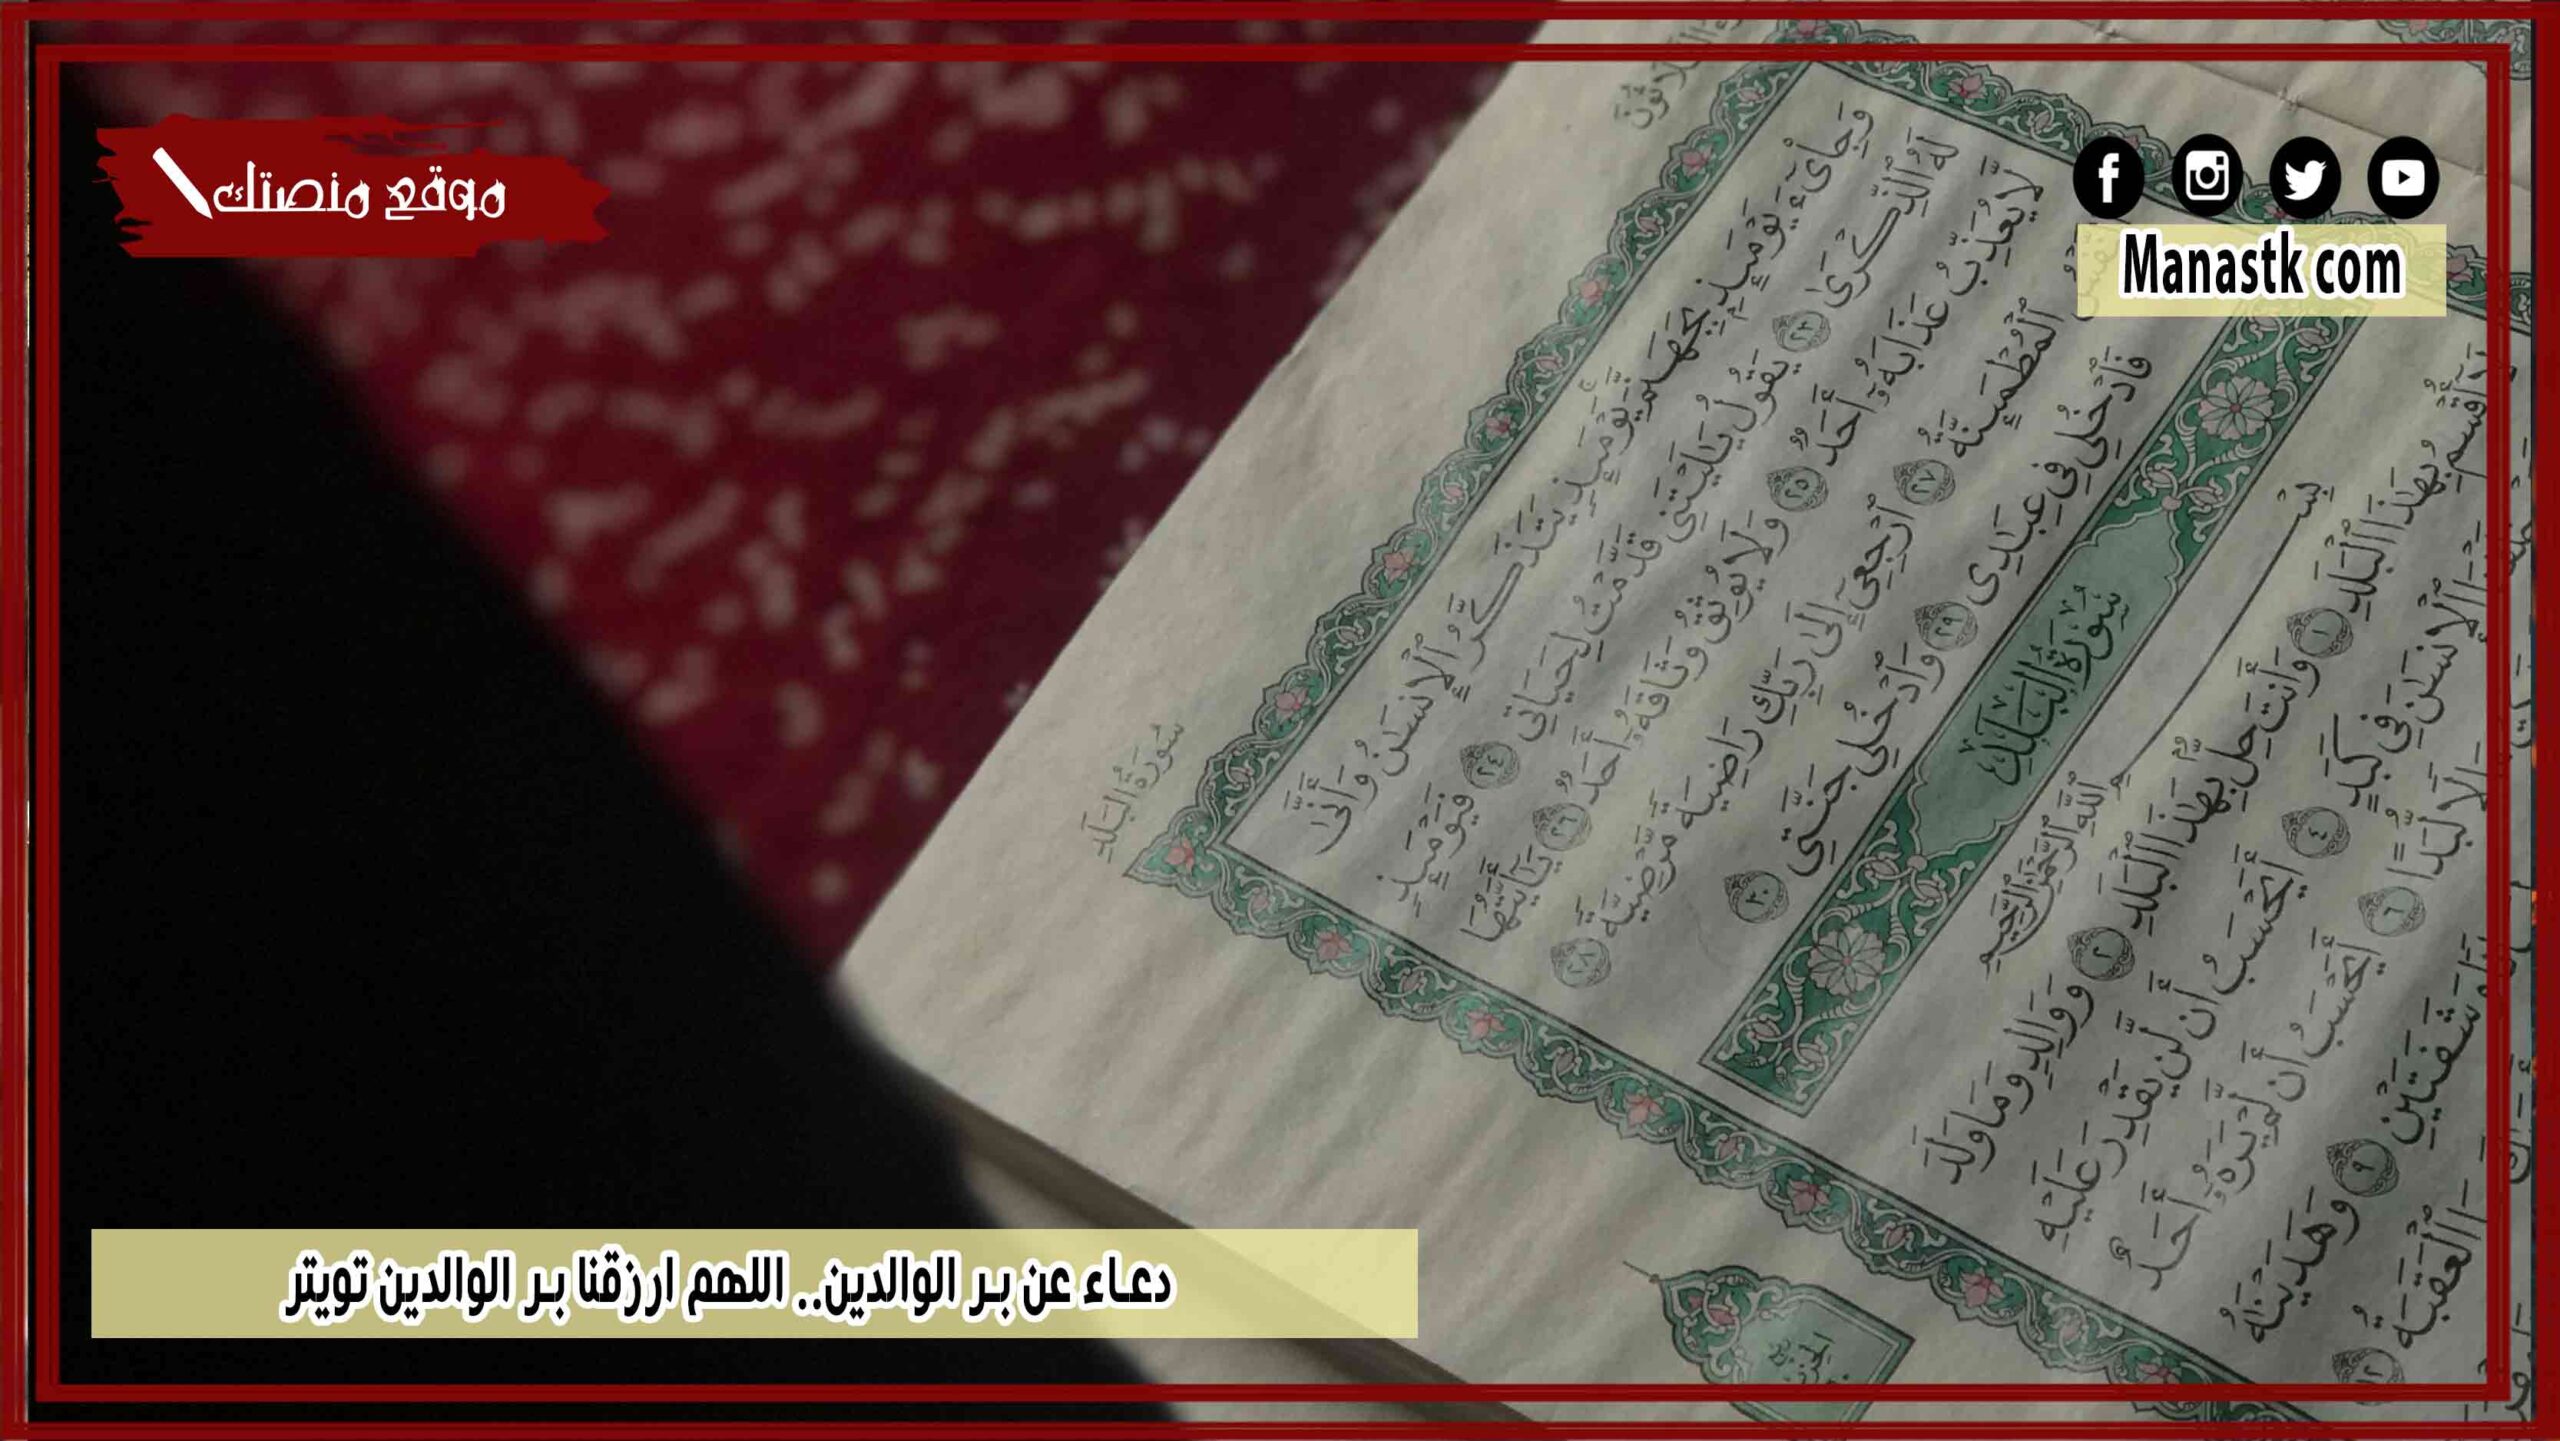 موقع منصتك
Manastk com
سُورَةُ الْبَلَدِ
وَجِاْىٓءَ يَوْمَئِذٍۭ بِجَهَنَّمَ يَوْمَئِذٍ يَتَذَكَّرُ ٱلْإِنسَٰنُ وَأَنَّىٰ
لَهُ ٱلذِّكْرَىٰ ٢٣ يَقُولُ يَٰلَيْتَنِى قَدَّمْتُ لِحَيَاتِى ٢٤ فَيَوْمَئِذٍ
لَّا يُعَذِّبُ عَذَابَهُۥٓ أَحَدٌ ٢٥ وَلَا يُوثِقُ وَثَاقَهُۥٓ أَحَدٌ ٢٦ يَٰٓأَيَّتُهَا
ٱلْمُطْمَئِنَّةُ ٢٧ ٱرْجِعِىٓ إِلَىٰ رَبِّكِ رَاضِيَةً مَّرْضِيَّةً ٢٨
فَٱدْخُلِى فِى عِبَٰدِى ٢٩ وَٱدْخُلِى جَنَّتِى ٣٠
سُورَةُ الْبَلَدِ
بِسْمِ ٱللَّهِ ٱلرَّحْمَٰنِ ٱلرَّحِيمِ
لَآ أُقْسِمُ بِهَٰذَا ٱلْبَلَدِ ١ وَأَنتَ حِلٌّۢ بِهَٰذَا ٱلْبَلَدِ ٢ وَوَالِدٍ وَمَا وَلَدَ
ٱلْإِنسَٰنَ فِى كَبَدٍ ٤ أَيَحْسَبُ أَن لَّن يَقْدِرَ عَلَيْهِ
مَالًا لُّبَدًا ٦ أَيَحْسَبُ أَن لَّمْ يَرَهُۥٓ أَحَدٌ
وَشَفَتَيْنِ ٩ وَهَدَيْنَٰهُ
ٱلْعَقَبَةُ ١٢
دعاء عن بر الوالدين.. اللهم ارزقنا بر الوالدين تويتر